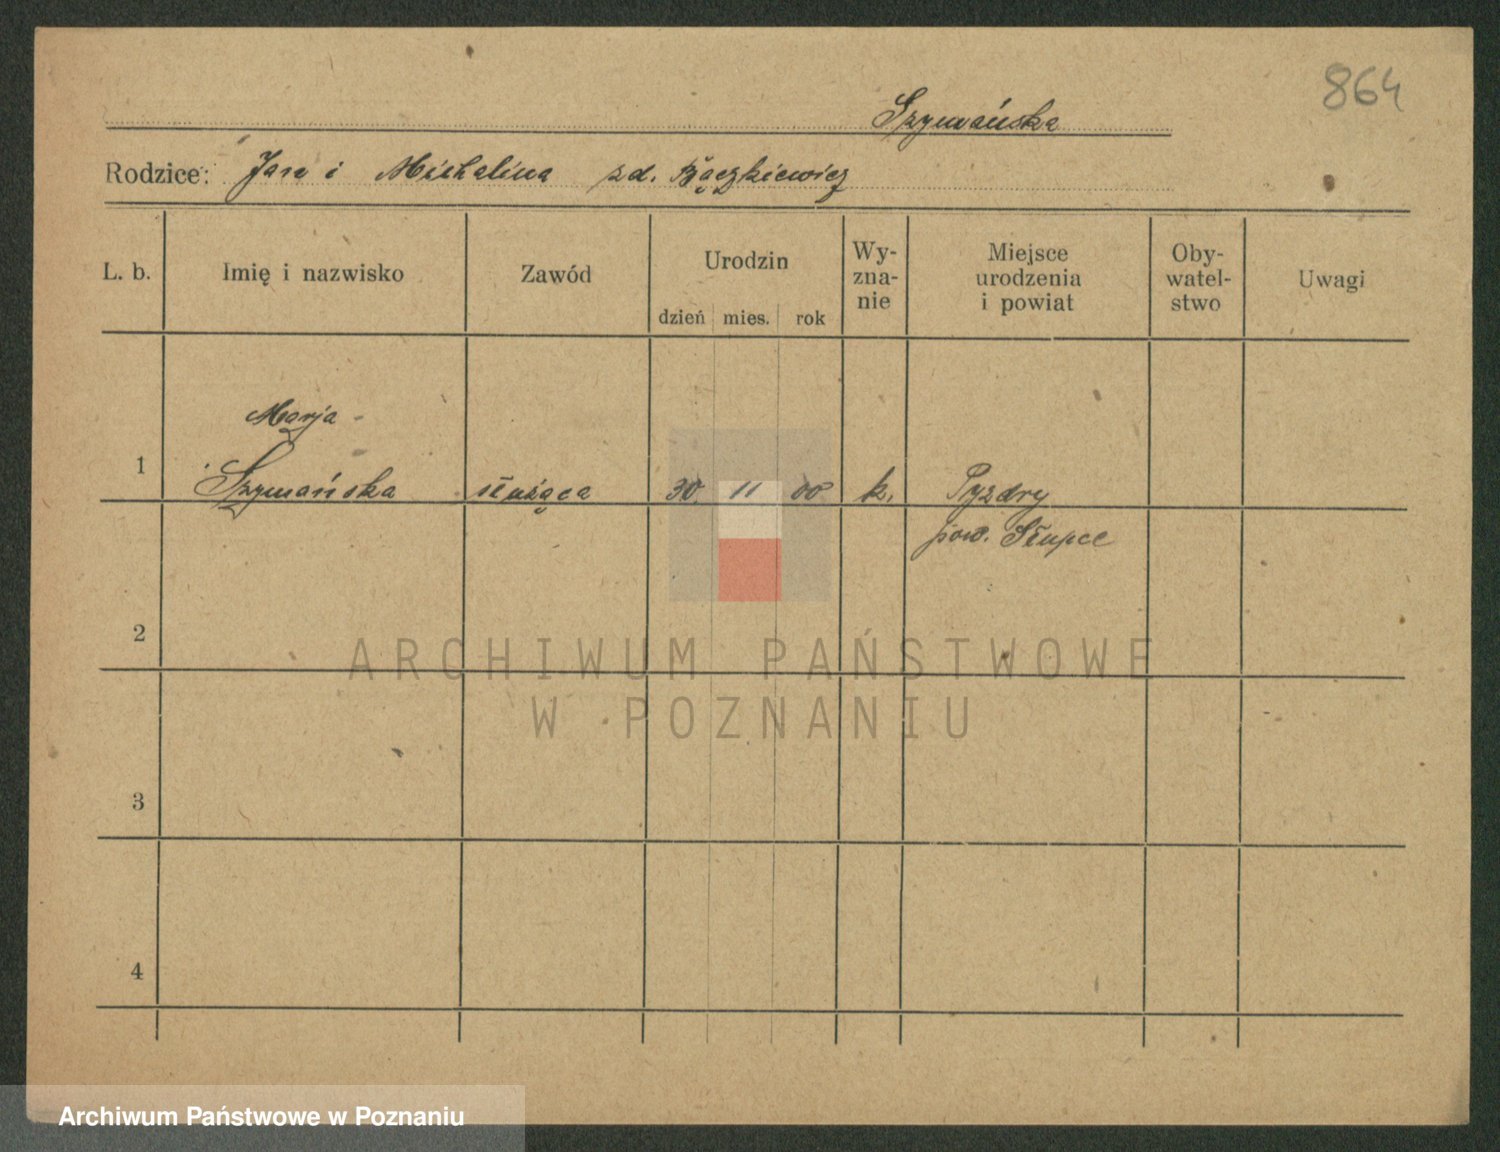 864
Szymańska
Rodzice: Jan i Michalina zd. Bączkiewicz
L. b. Imię i nazwisko Zawód Urodzin dzień mies. rok Wy-znanie Miejsce urodzenia i powiat Oby-watel-stwo Uwagi
Marja -
1 Szymańska służąca 30 11 00 k. Pyzdry
pow. Słupce
2
ARCHIWUM PAŃSTWOWE
W POZNANIU
3
4
Archiwum Państwowe w Poznaniu